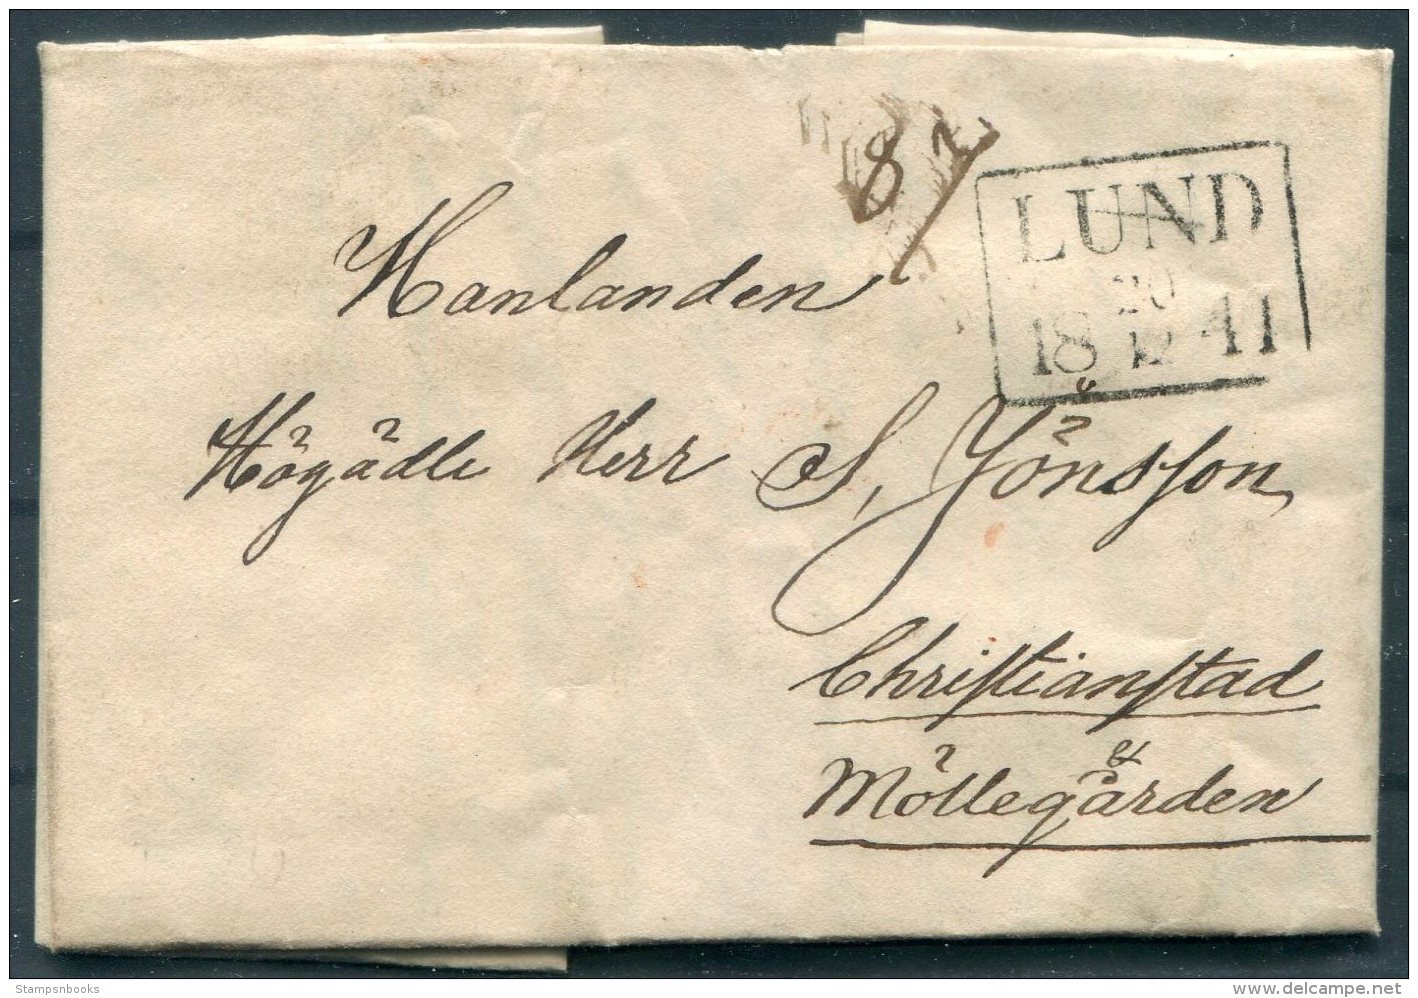 87
LUND
20
18 12 41
Hanlanden
Högädle Herr S, Jönsson,
Christianstad
Möllegården
Stampsnbooks
delcampe.net